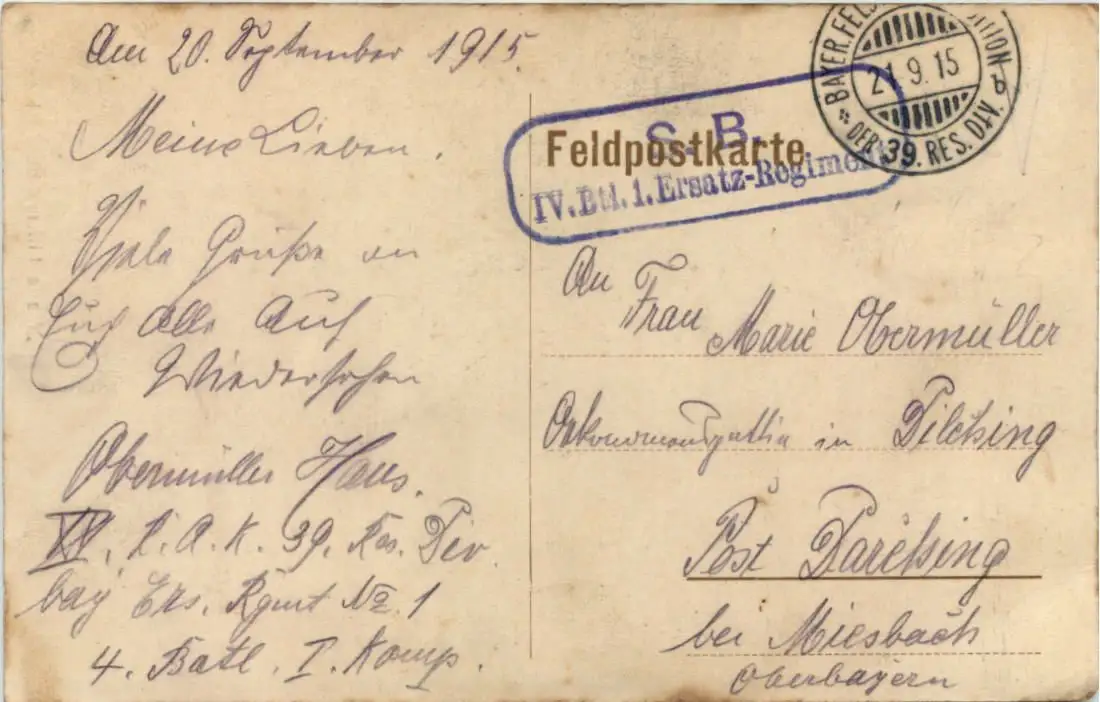 Am 20. September 1915.
Meine Lieben.
Viele Grüße an
Euch Alle Auf
Wiedersehen
Obermüller Hans.
R. A. K. 39. Res. Div.
bay Ers. Rgmt No 1
4. Batl. I. Komp.
BAYER. FELD
DER 39. RES. DIV.
21.9.15
S. B.
Feldpostkarte
IV. Btl. 1. Ersatz-Regiment
An
Frau Marie Obermüller
in
Post
bei Miesbach
Oberbayern